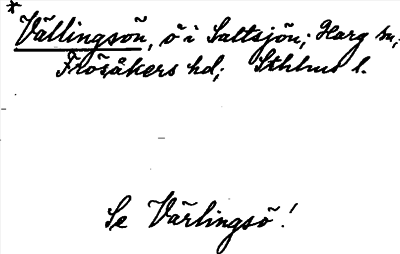 * Vällingsön, ö i Saltsjön; Harg sn;
Frösåkers hd; Sthlms l.
Se Värlingsö!